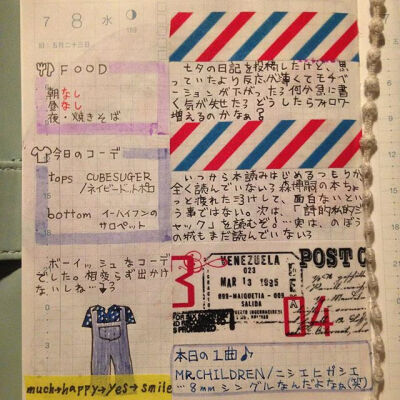 7 8 水
旧:五月二十三日
FOOD
朝 なし
昼 なし
夜・焼きそば
今日のコーデ
tops CUBESUGER
/ネイビードットポロ
bottom イーハイフンの
サロペット
ボーイッシュなコーデ
でした。相変らず出かけ
ないしね…
much→happy→yes→smile
七夕の日記を投稿したけど、思
っていたより反応が薄くてモチベ
ーションが下がったろ何か急に書
く気が失せたろどうしたらフォロワー
増えるのかなぁ?
いつから本読みはじめるつもりか
全く読んでいないろ森博嗣の本ちょ
っと疲れた
面白いとい
う事ではない。次は、「詩的私的ジ
ャック」を読むぞ!…実は、のぼう
の城もまだ読んでいないろ
VENEZUELA
023
MAR 13 1995
099-MAIQUETIA-009
SALIDA
POST C
04
本日の1曲♪
MR.CHILDREN/ニシエヒガシエ
…8mmシングルなんだよなぁ(笑)